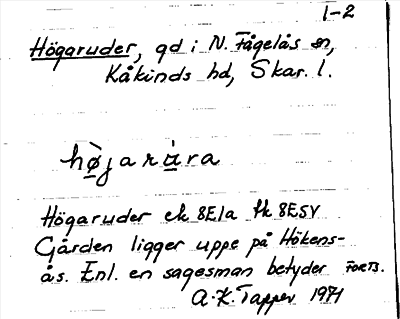 1-2
Högaruder, gd i N. Fågelås sn,
Kåkinds hd, Skar. l.
hø̀jarùra
Högaruder ek 8E1a fk 8E5V
Gården ligger uppe på Hökens-
ås. Enl. en sagesman betyder FORTS.
A-K. Tapper 1971